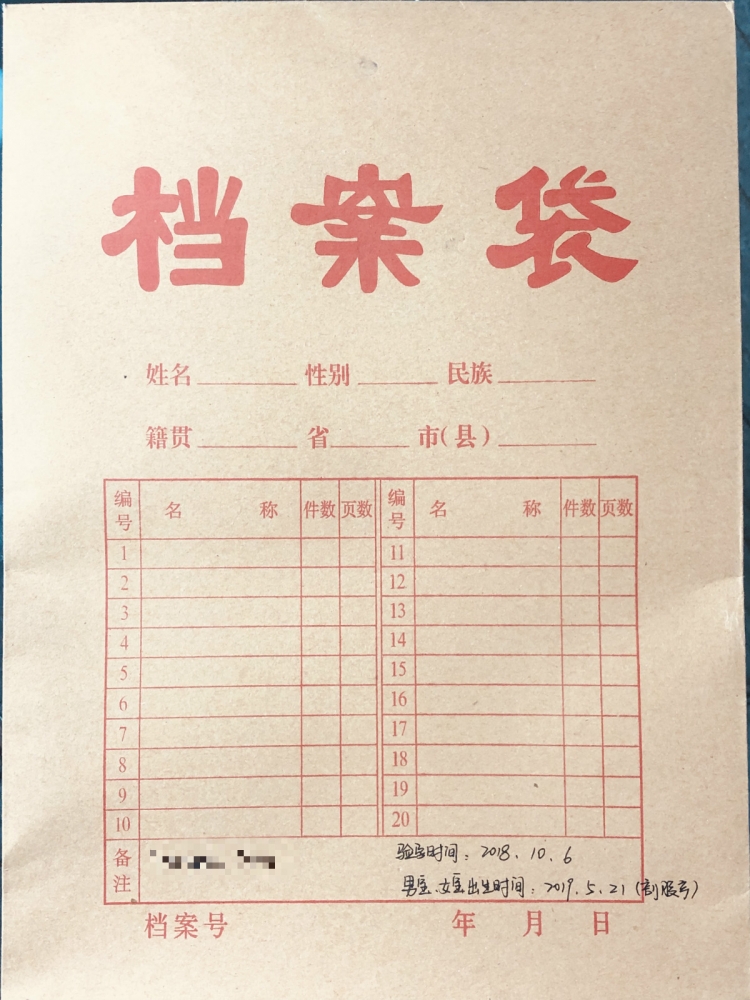 档案袋
姓名 性别 民族
籍贯 省 市(县)
编号 名 称 件数 页数 编号 名 称 件数 页数
1 11
2 12
3 13
4 14
5 15
6 16
7 17
8 18
9 19
10 20
备注 验孕时间:2018.10.6
男宝.女宝出生时间:2019.5.21(剖腹产)
档案号 年 月 日